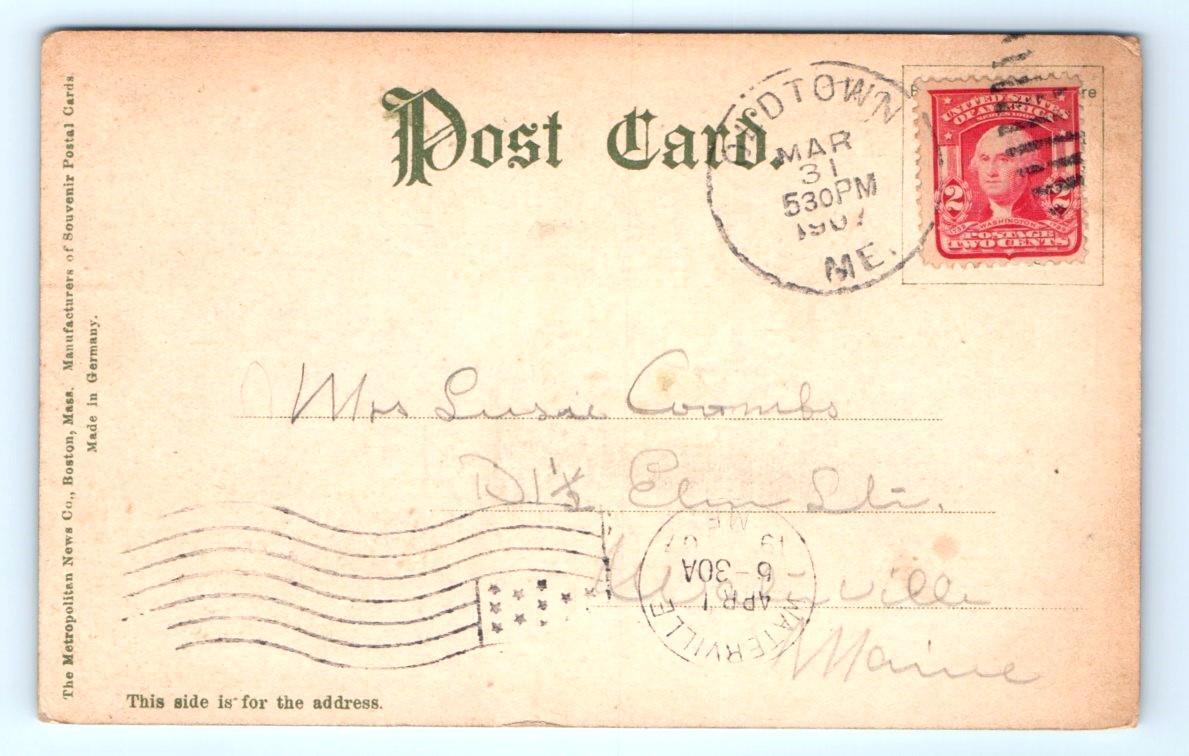 Post Card.
OLDTOWN
MAR
31
530PM
1907
ME.
re
UNITED STATES
OF AMERICA
SERIES 1902
2 2
WASHINGTON
POSTAGE
TWO CENTS
Mrs Susie Coombs
Elm Str.
ville
Maine
WATERVILLE
APR 1
6-30A
19 07
ME.
This side is for the address.
The Metropolitan News Co., Boston, Mass. Manufacturers of Souvenir Postal Cards.
Made in Germany.